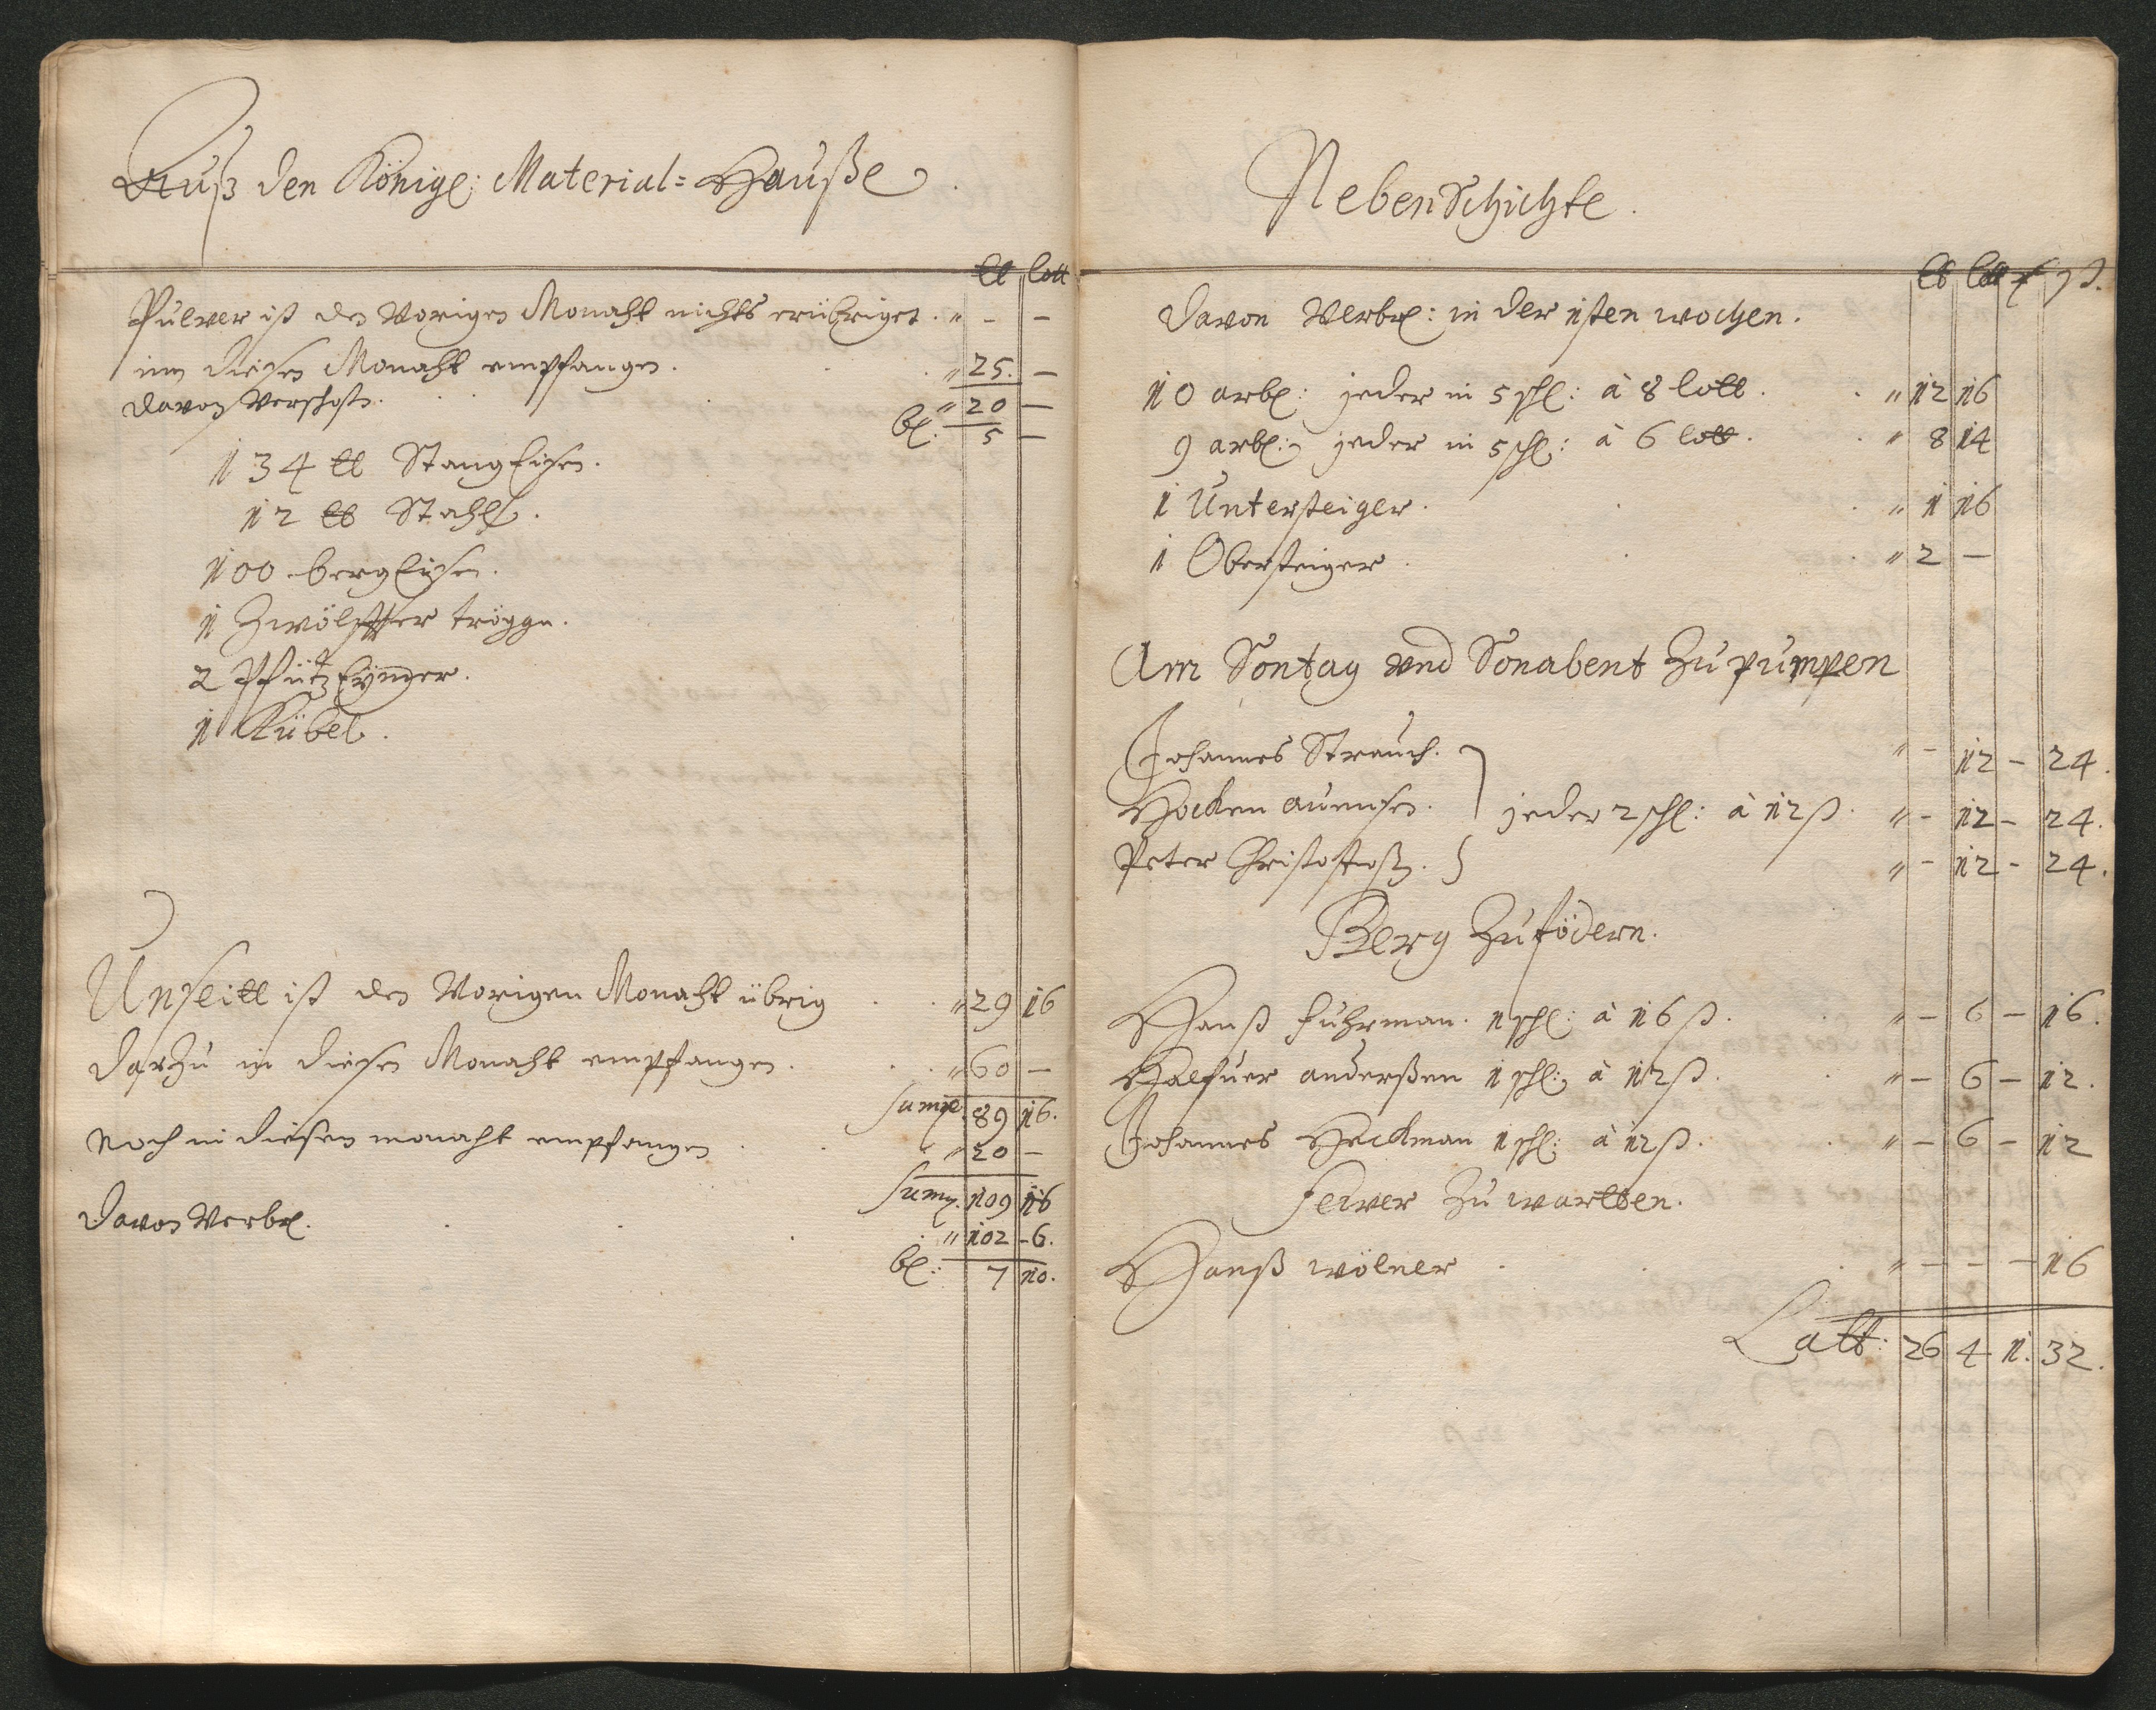 Auß den Königl: Material=Hauße.
℔ lott
Pulver ist den Vorigen Monaht nichts erübriget. " - -
inn diesen Monaht empfangen. " 25. -
davon Verschoßn. " 20 -
bl: 5 -
134 ℔ Stang Eisen.
12 ℔ Stahl.
100 berg Eisen.
1 Zwölffter trögge.
2 Pfütz Eymer.
1 Kübel.
Unßlitt ist den Vorigen Monaht übrig " 29 16
Darzu in diesen Monaht empfangen. " 60 -
Summa 89 16.
Noch in diesen monaht empfangen " 20 -
Summa. 109 16
davon Verbr. " 102 - 6.
bl: 7 10.
Neben Schichte.
℔ lott ß.
Davon Verbr: in der 1sten wochen.
10 arb: jeder in 5 schl: à 8 lott. " 12 16
9 arb: jeder in 5 schl: à 6 lott. " 8 14
1 Untersteiger. " 1 16
1 Obersteiger. " 2 -
Am Sontag und Sonabent Zu pumpen
Johannes Strauch. " - 12 - 24.
Hocken auensen. jeder 2 schl: à 12 ß. " - 12 - 24.
Peter " - 12 - 24.
Berg Zu födern.
Hanß fuhrman. 1 schl: à 16 ß. " - 6 - 16.
Halfuer anderßen 1 schl: à 12 ß. " - 6 - 12.
Johannes Heckman 1 schl: à 12 ß. " - 6 - 12
feiwer Zu wartten.
Hanß wölner " - - - 16
Latt: 26 4 1. 32.